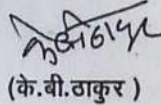 (के.बी.ठाकुर )